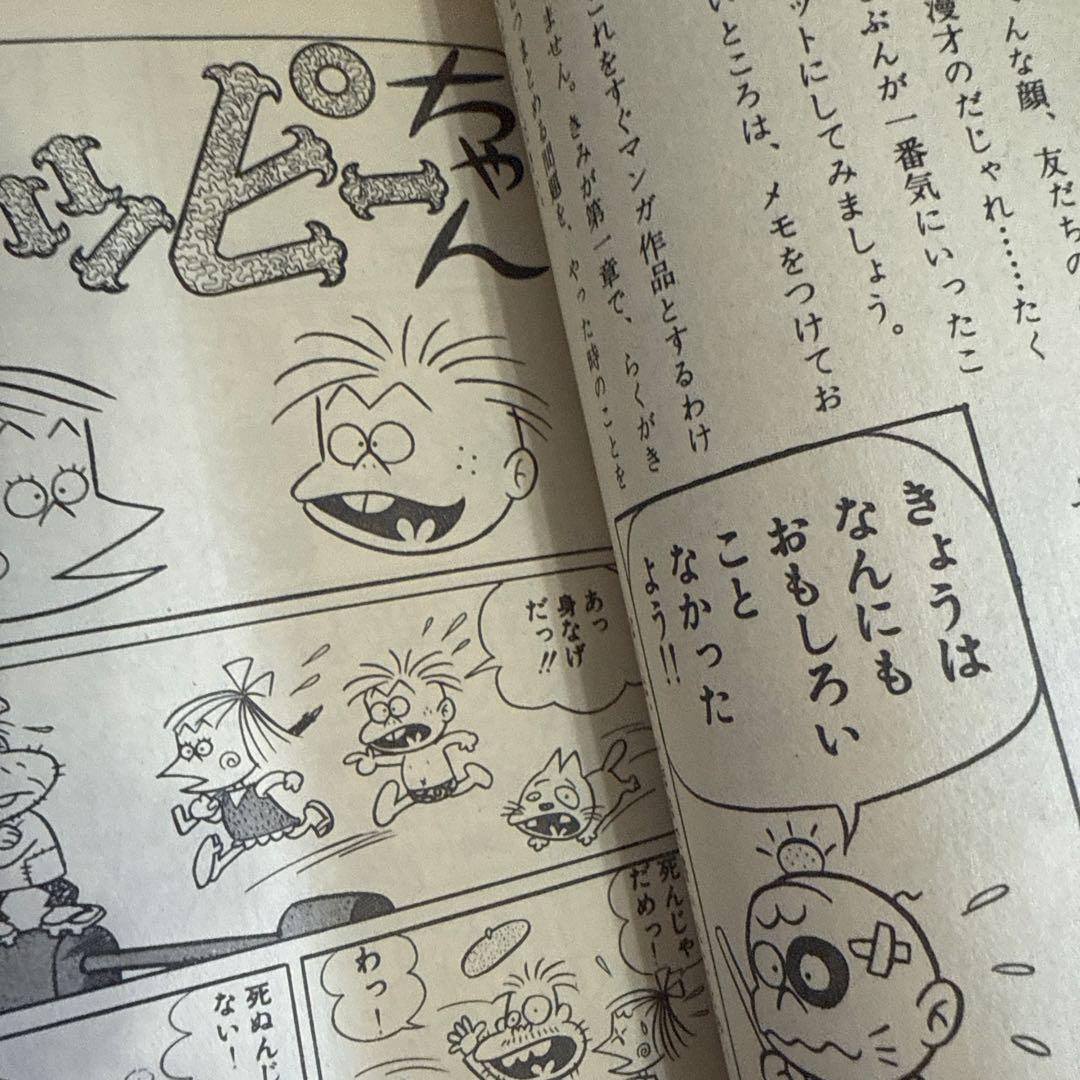 んな顔、友だちの
漫才のだじゃれ……たく
ぶんが一番気にいったこ
ットにしてみましょう。
いところは、メモをつけてお
これをすぐマンガ作品とするわけ
ません。きみが第一章で、らくがき
やった時のことを
きょうは
なんにも
おもしろい
こと
なかった
よう!!
ピーちゃん
あっ
身なげ
だっ!!
死んじゃ
だめっ!
わっー!
死ぬんじ
ない!